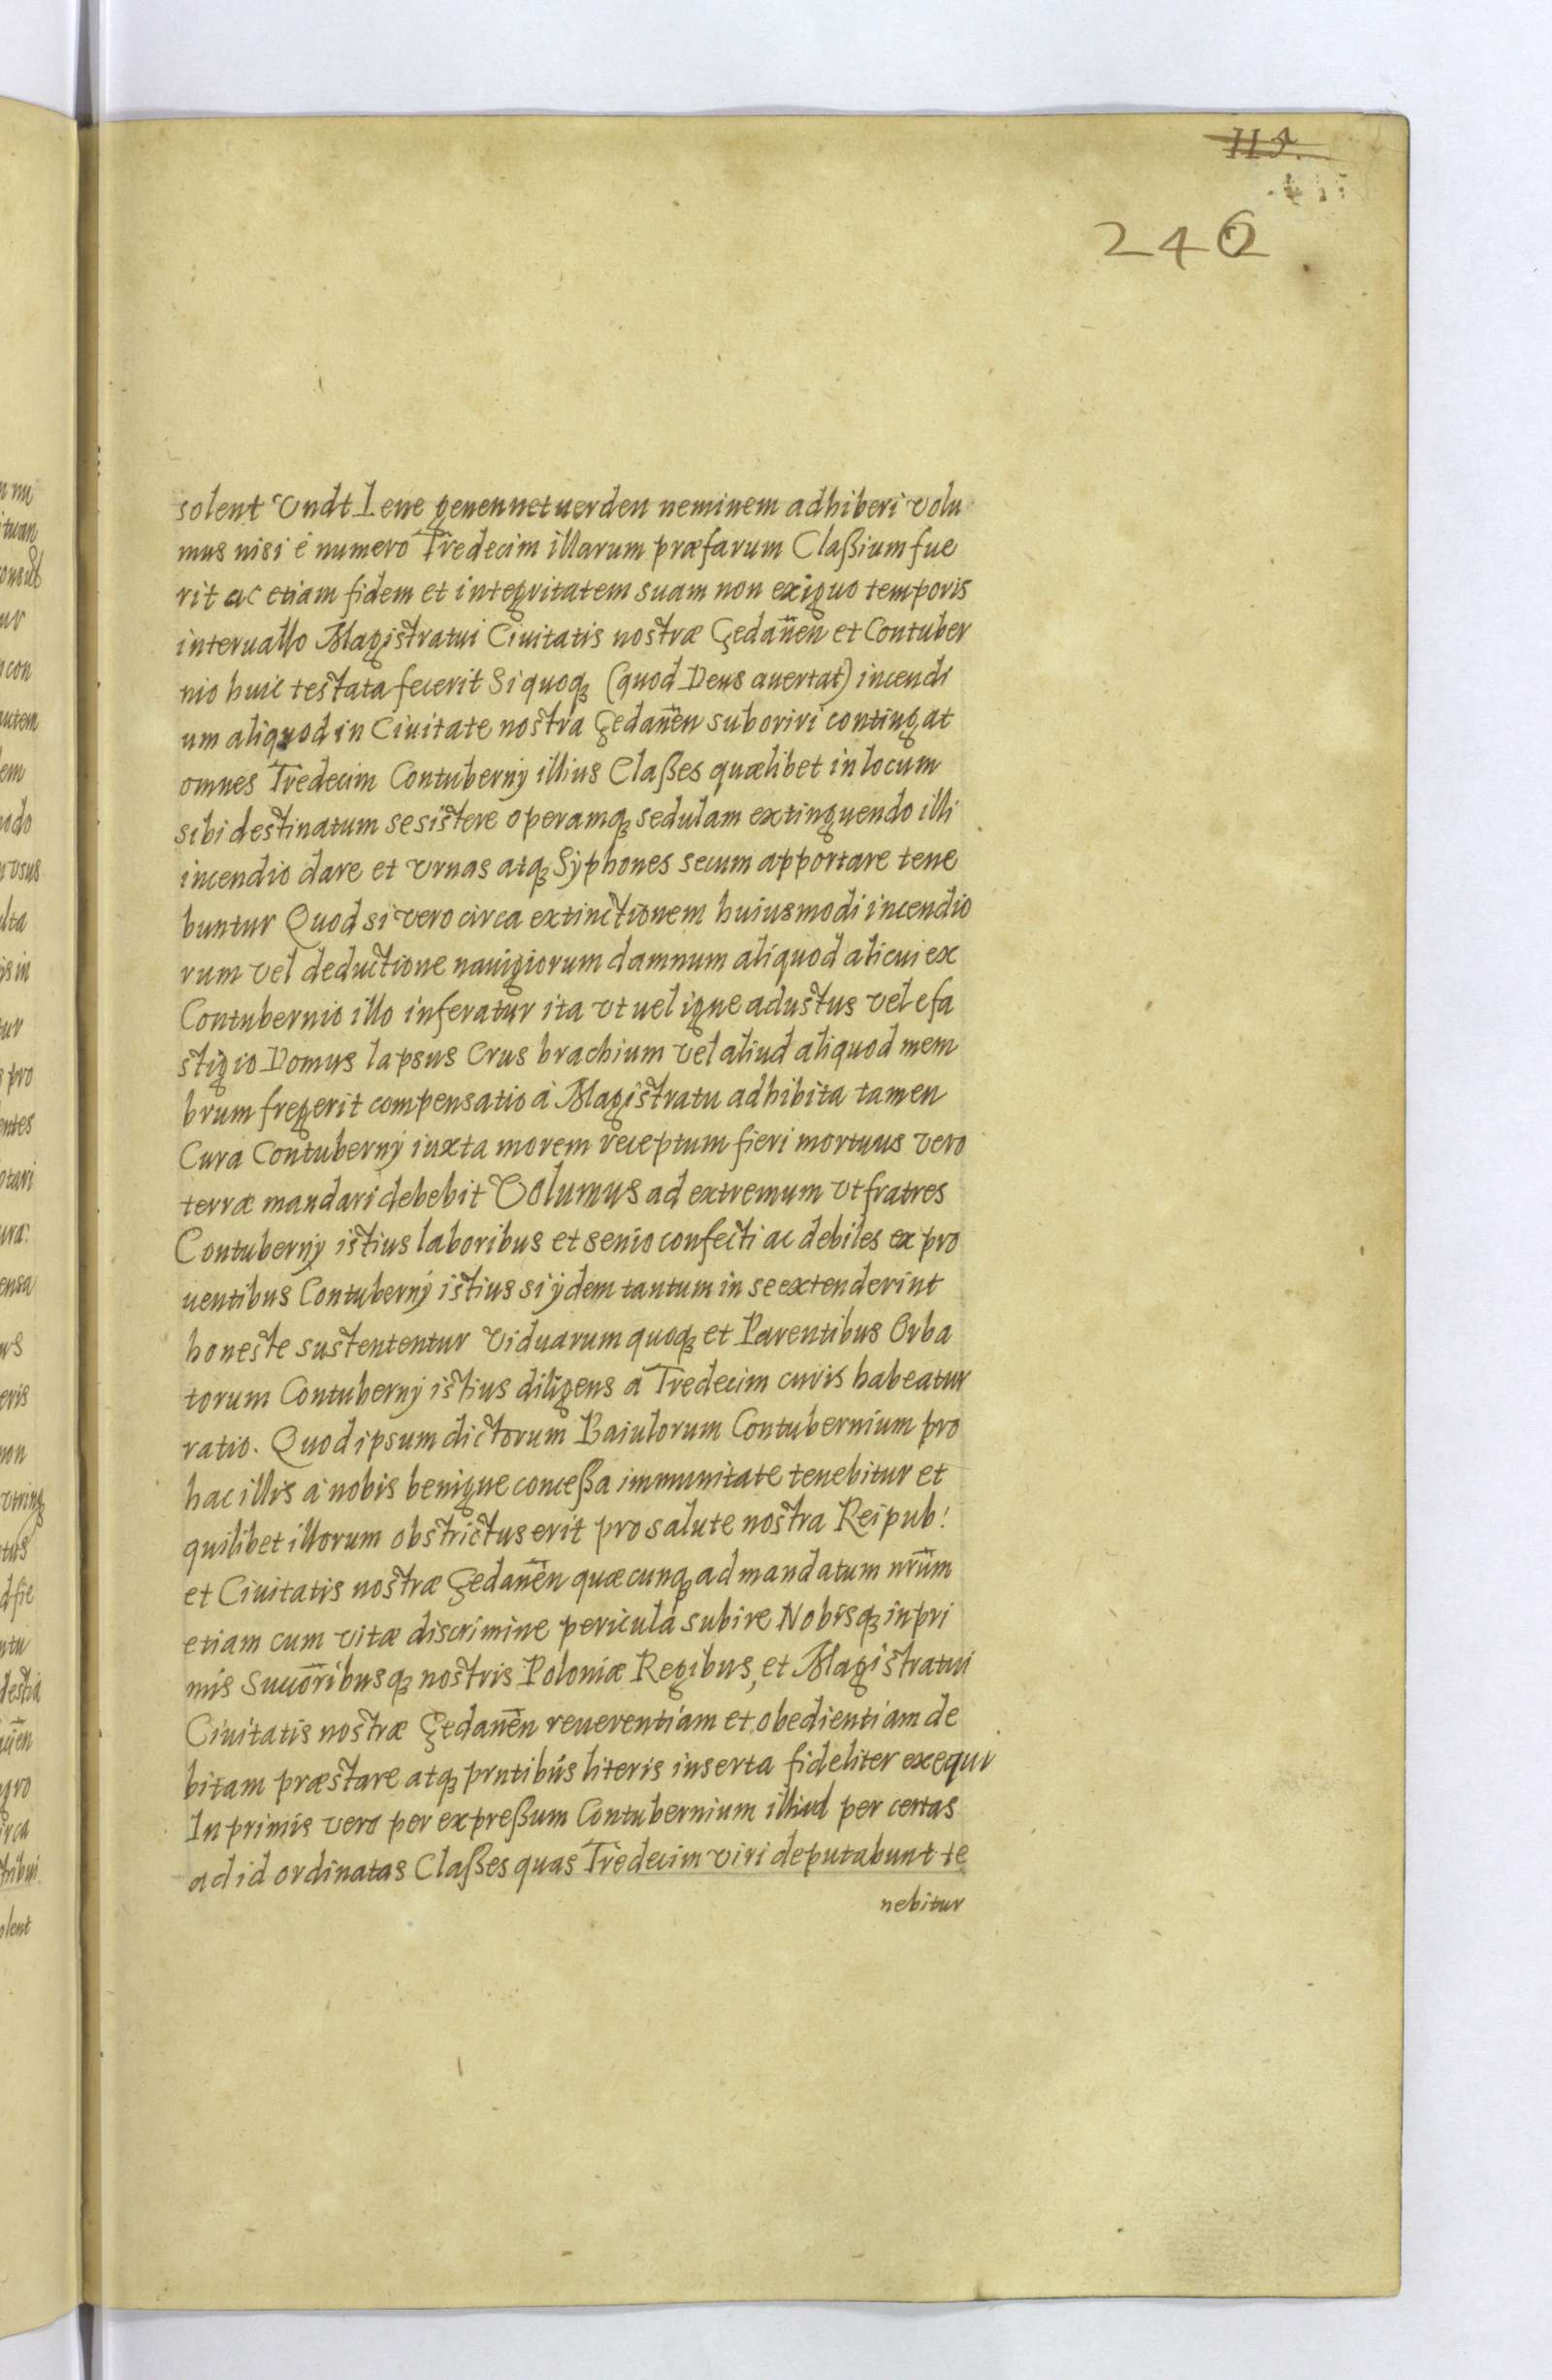 240
solent Vndt Lene genennet uerden neminem adhiberi volu
mus nisi é numero Tredecim illarum præfarum Claßium fue
rit ac etiam fidem et integritatem suam non exiguo temporis
interuallo Magistratui Ciuitatis nostræ Gedanen̄ et Contuber
nio huic testata fecerit Si quoq₃ (quod Deus auertat) incendi
um aliquod in Ciuitate nostra Gedanen̄ suboriri contingat
omnes Tredecim Contubernÿ illius Claßes quælibet in locum
sibi destinatum se sistere operamq₃ sedulam extinguendo illi
incendio dare et vrnas atq₃ Syphones secum apportare tene
buntur Quod si vero circa extinctionem huiusmodi incendio
rum vel deductione nauigiorum damnum aliquod alicui ex
Contubernio illo inferatur ita vt uel igne adustus vel e fa
stigio Domus lapsus Crus brachium vel aliud aliquod mem
brum fregerit compensatio á Magistratu adhibita tamen
Cura Contubernÿ iuxta morem receptum fieri mortuus vero
terræ mandari debebit Volumus ad extremum vt fratres
Contubernÿ istius laboribus et senio confecti ac debiles ex pro
uentibus Contubernÿ istius si ÿdem tantum in se extenderint
honeste sustententur Viduarum quoq₃ et Parentibus Orba
torum Contubernÿ istius diligens á Tredecim curis habeatur
ratio. Quod ipsum dictorum Baiulorum Contubernium pro
hac illis á nobis benigne conceßa immunitate tenebitur et
quilibet illorum obstrictus erit pro salute nostra Reipub:
et Ciuitatis nostræ Gedanen̄ quæcunq₃ ad mandatum nr̄um
etiam cum vitæ discrimine pericula subire Nobisq₃ inpri
mis Succor̄ibusq₃ nostris Poloniæ Regibus, et Magistratui
Ciuitatis nostræ Gedanen̄ reuerentiam et obedientiam de
bitam præstare atq₃ prntibus literis inserta fideliter exequi
In primis vero per expreßum Contubernium illud per certas
ad id ordinatas Claßes quas Tredecim viri deputabunt te
nebitur